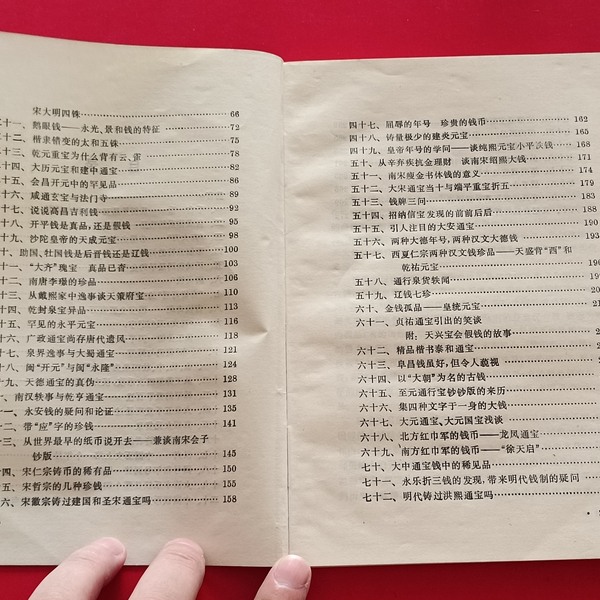 宋大明四铢 66
二十一、鹅眼钱——永光、景和钱的特征 72
十二、楷隶错变的太和五铢 75
十三、乾元重宝为什么背有云、雀 78
十四、大历元宝和建中通宝 82
十五、会昌开元中的罕见品 86
十六、咸通玄宝与法门寺 89
十七、说说高昌吉利钱 92
十八、开平钱是真品,还是假钱 95
十九、沙陀皇帝的天成元宝 98
十、助国、壮国钱是后晋钱还是辽钱 100
十一、“大齐”瑰宝 真品已杳 103
十二、南唐李璟的珍品 106
十三、从戴熙家中逸事谈天策府宝 110
十四、乾封泉宝异品 113
十五、罕见的永平元宝 116
十六、广政通宝尚存唐代遗风 118
十七、泉界逸事与大蜀通宝 121
十八、闽“开元”与闽“永隆” 124
十九、天德通宝的真伪 128
、南汉轶事与乾亨通宝 131
一、永安钱的疑问和论证 135
二、带“应”字的珍钱 141
三、从世界最早的纸币说开去——兼谈南宋会子
钞版 145
四、宋仁宗铸币的稀有品 150
五、宋哲宗的几种珍钱 155
六、宋徽宗铸过建国和圣宋通宝吗 158
四十七、屈辱的年号 珍贵的钱币 162
四十八、铸量极少的建炎元宝 165
四十九、皇帝年号的学问——谈纯熙元宝小平铁钱 168
五十、从辛弃疾抗金理财 谈南宋绍熙大钱 171
五十一、南宋瘦金书体钱的意义 174
五十二、大宋通宝当十与端平重宝折五 179
五十三、钱牌三问 183
五十四、招纳信宝发现的前前后后 188
五十五、引人注目的大安通宝
五十六、两种大德年号,两种汉文大德钱 193
五十七、西夏仁宗两种汉文钱珍品——天盛背“西”和
乾祐元宝
五十八、通行泉货轶闻
五十九、辽钱七珍
六十、金钱孤品——皇统元宝
六十一、贞祐通宝引出的笑谈
附:天兴宝会假钱的故事
六十二、精品楷书泰和通宝
六十三、阜昌钱虽好,但令人藐视
六十四、以“大朝”为名的古钱
六十五、至元通行宝钞钞版的来历
六十六、集四种文字于一身的大钱
六十七、大元通宝、大元国宝浅谈
六十八、北方红巾军的钱币——龙凤通宝
六十九、南方红巾军的钱币——“徐天启”
七十、大中通宝钱中的稀见品
七十一、永乐折三钱的发现,带来明代钱制的疑问
七十二、明代铸过洪熙通宝吗